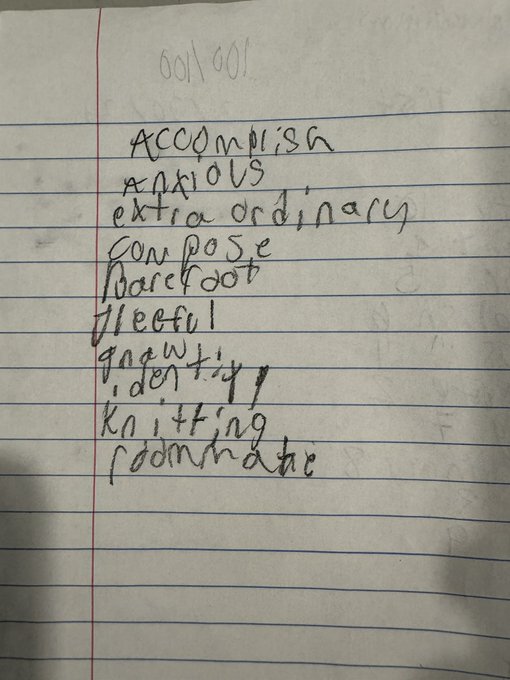 100/100
Accomplish
Anxious
extra ordinary
compose
Barefoot
gleeful
gnaw
identify
knitting
roommate